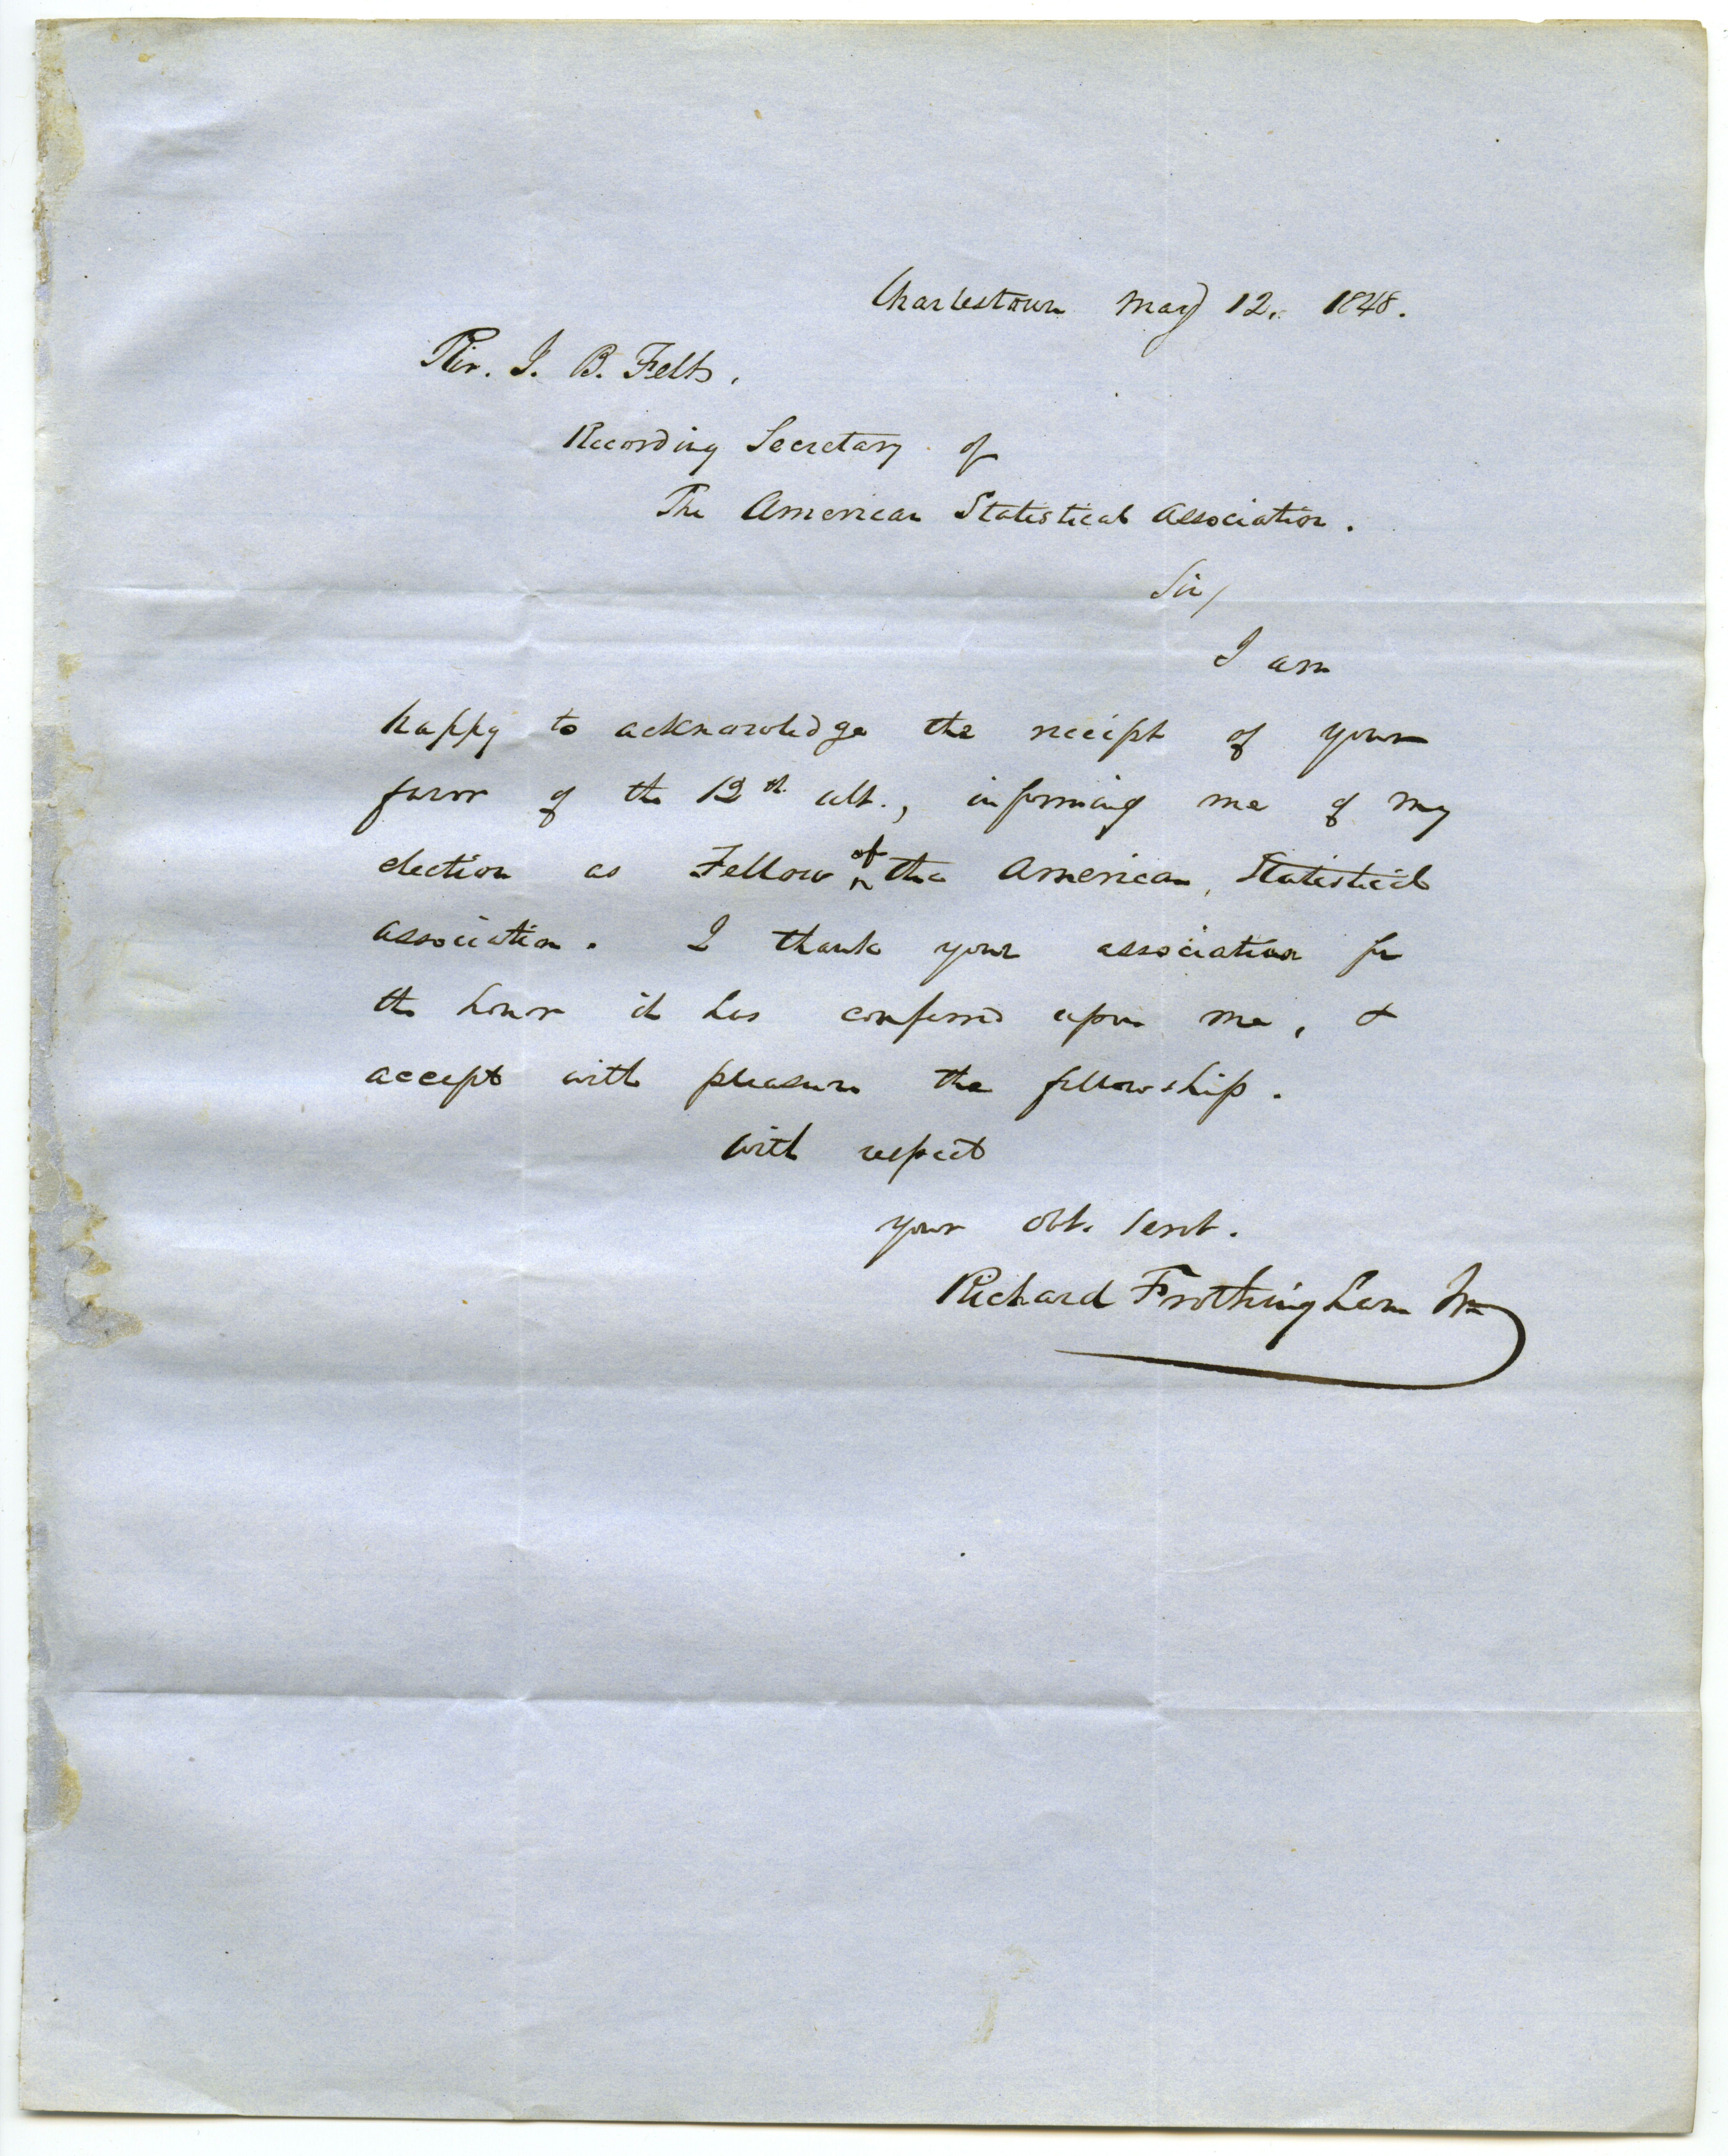 Charlestown May 12, 1848.
Rev. J. B. Felt,
Recording Secretary of
The American Statistical Association.
Sir,
I am
happy to acknowledge the receipt of your
favor of the 12th ult., informing me of my
election as Fellow of the American Statistical
association. I thank your association for
the honor it has conferred upon me, &
accept with pleasure the fellowship.
with respect
your obt. servt.
Richard Frothingham Jr.